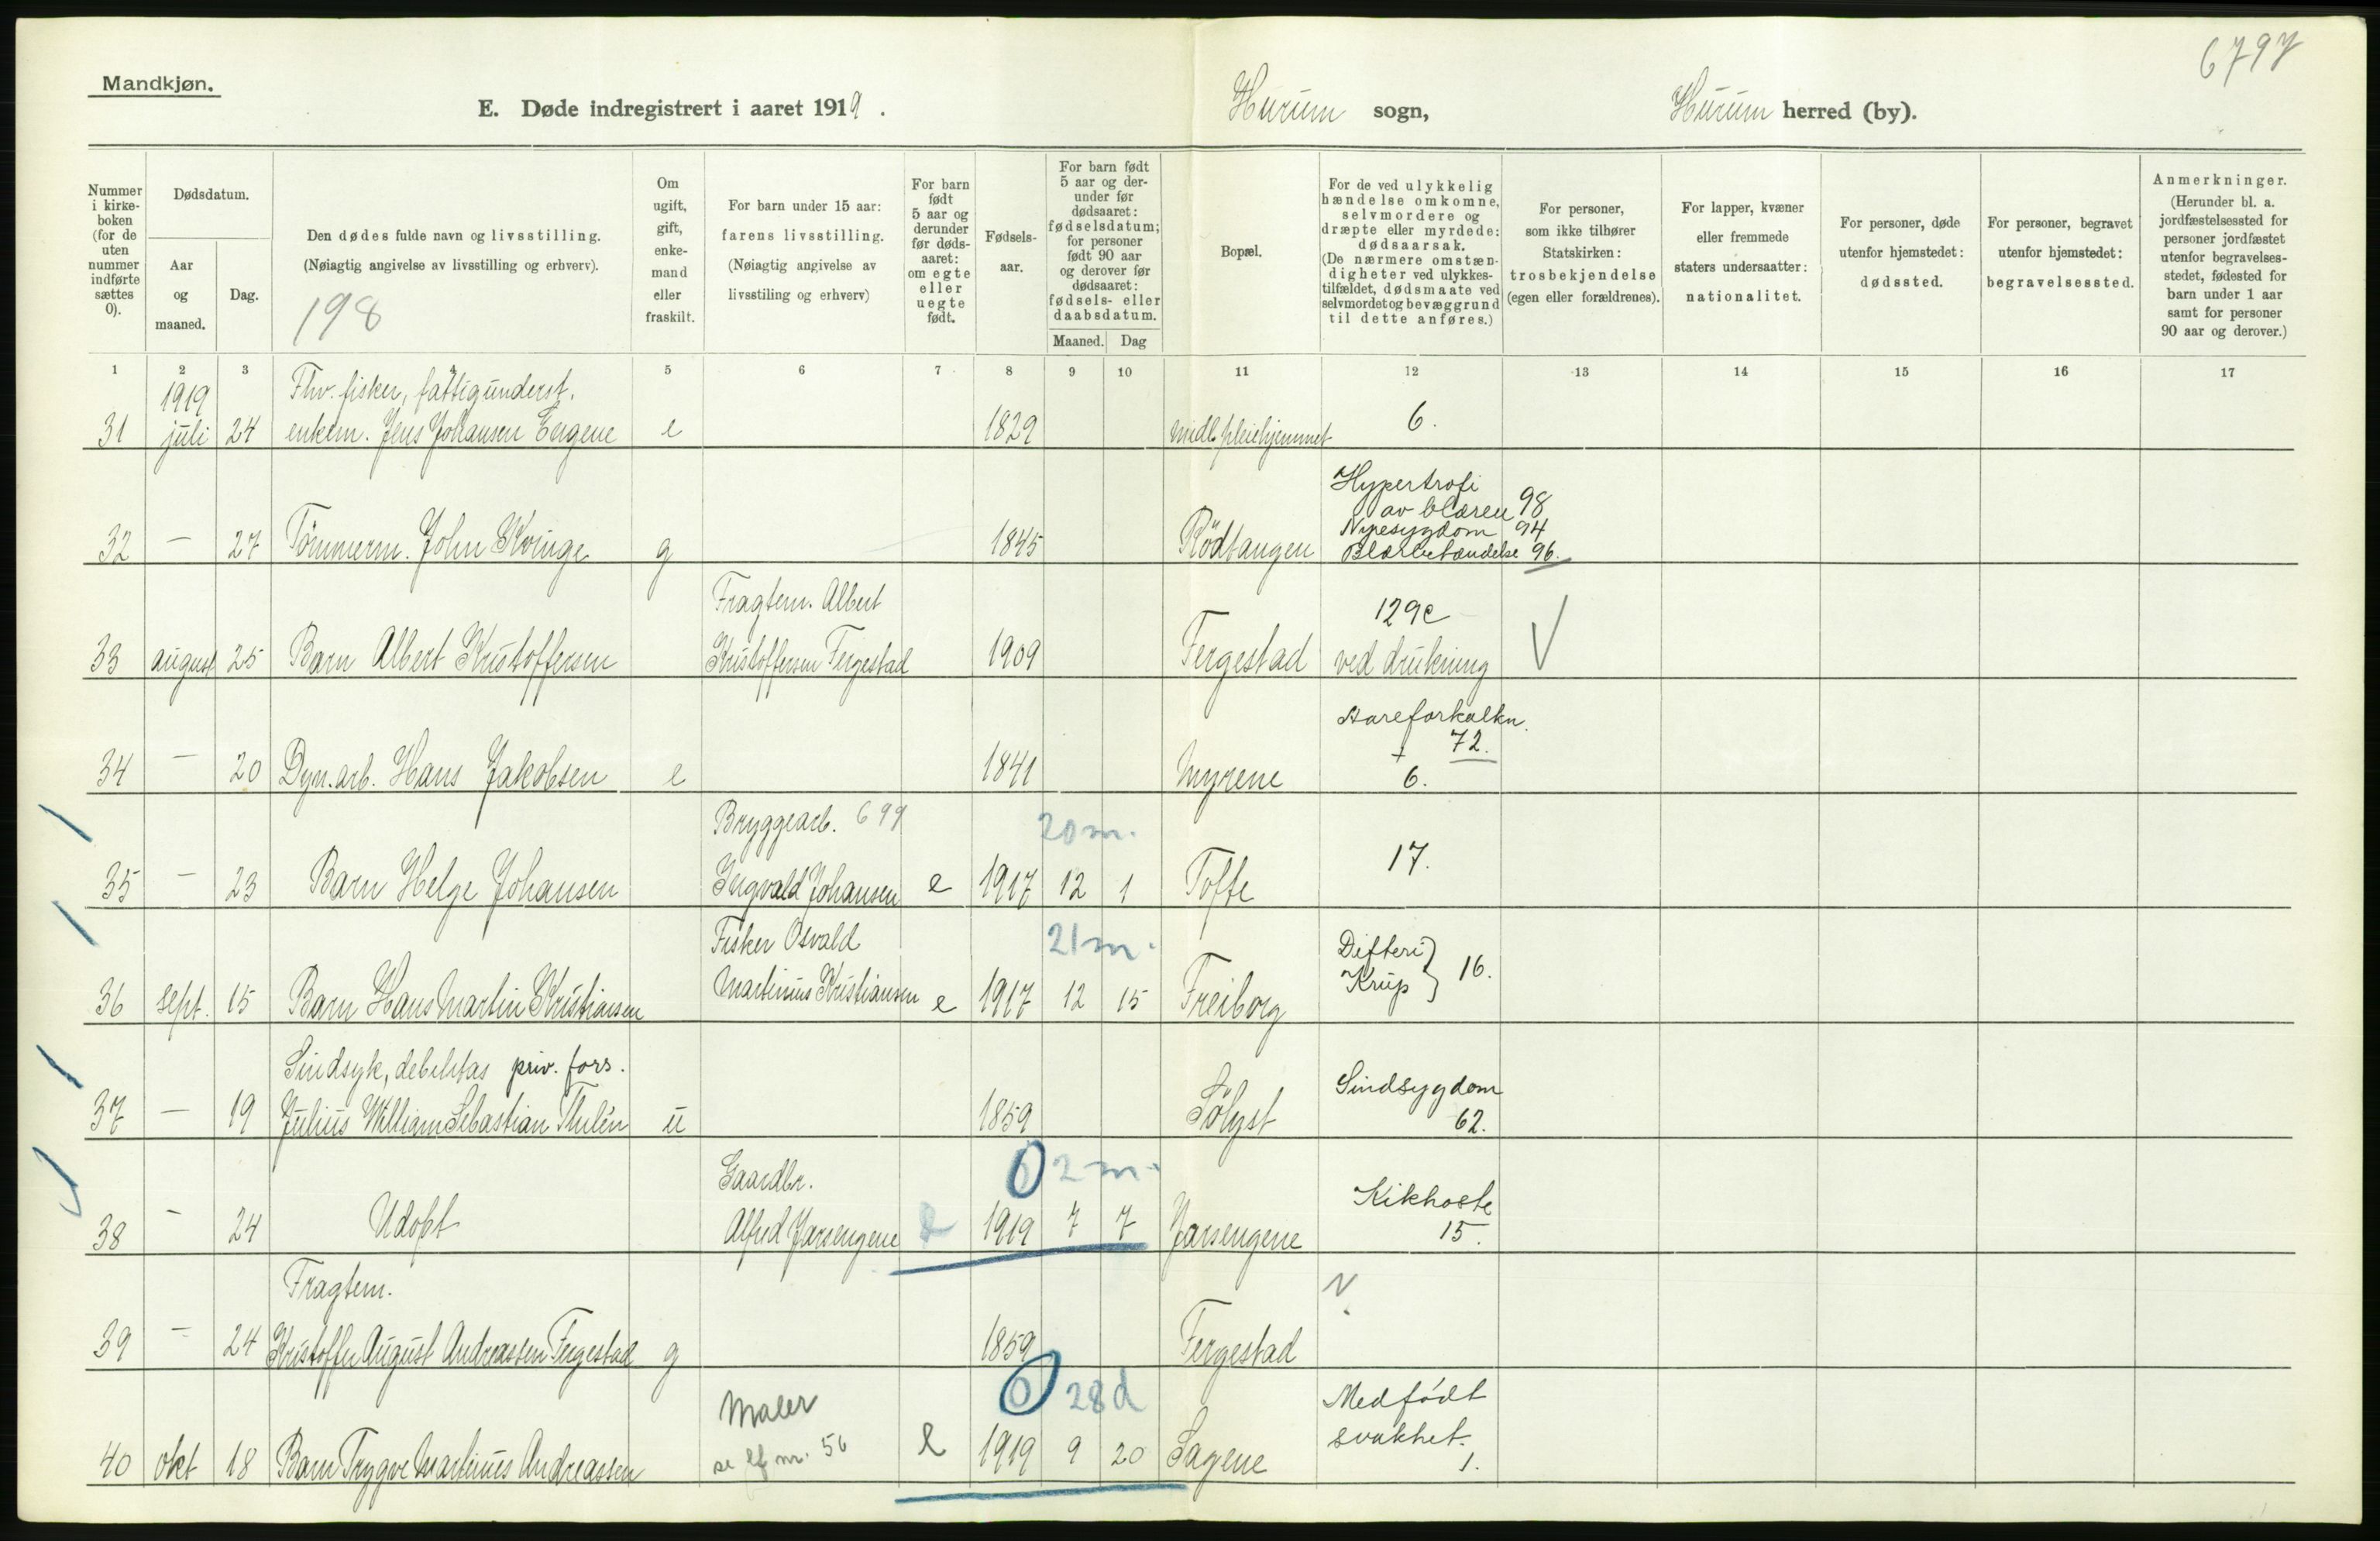 6797
Mandkjøn.
E. Døde indregistrert i aaret 1919.
Hurum sogn,
Hurum herred (by).
Nummer
i kirke-
boken
(for de
uten
nummer
indførte
sættes
0).
Dødsdatum.
Aar
og
maaned.
Dag.
Den dødes fulde navn og livsstilling.
(Nøiagtig angivelse av livsstilling og erhverv).
198
Om
ugift,
gift,
enke-
mand
eller
fraskilt.
For barn under 15 aar:
farens livsstilling.
(Nøiagtig angivelse av
livsstiling og erhverv)
For barn
født
5 aar og
derunder
før døds-
aaret:
om egte
eller
uegte
født.
Fødsels-
aar.
For barn født
5 aar og der-
under før
dødsaaret:
fødselsdatum;
for personer
født 90 aar
og derover før
dødsaaret:
fødsels- eller
daabsdatum.
Maaned. Dag
Bopæl.
For de ved ulykkelig
hændelse omkomne,
selvmordere og
dræpte eller myrdede:
dødsaarsak.
(De nærmere omstæn-
digheter ved ulykkes-
tilfældet, dødsmaate ved
selvmordet og bevæggrund
til dette anføres.)
For personer,
som ikke tilhører
Statskirken:
trosbekjendelse
(egen eller forældrenes).
For lapper, kvæner
eller fremmede
staters undersaatter:
nationalitet.
For personer, døde
utenfor hjemstedet:
dødssted.
For personer, begravet
utenfor hjemstedet:
begravelsessted.
Anmerkninger.
(Herunder bl. a.
jordfæstelsessted for
personer jordfæstet
utenfor begravelses-
stedet, fødested for
barn under 1 aar
samt for personer
90 aar og derover.)
1 2 3 4 5 6 7 8 9 10 11 12 13 14 15 16 17
1919 Fhv. fisker, fattigunderst.
31 juli 24 enkem. Jens Johansen Engene e 1829 midl. pleiehjemmet 6.
Hypertrofi
av blæren 98
Nyresygdom 94
32 — 27 Tömmerm. John Kvinge g 1845 Rödtangen Blærebetændelse 96.
Fragtem. Albert 129c
33 august 25 Barn Albert Kristoffersen Kristoffersen Fergestad 1909 Fergestad ved drukning V
Aareforkalkn.
+ 72.
34 — 20 Dyn. arb. Hans Jakobsen e 1841 Myrene 6.
Bryggearb. 699 20 m.
35 — 23 Barn Helge Johansen Ingvald Johansen e 1917 12 1 Tofte 17.
Fisker Osvald 21 m. Difteri
36 sept. 15 Barn Hans Martin Kristiansen Martinius Kristiansen e 1917 12 15 Freiborg Krup } 16.
Sindsyk, debilitas priv. fors. Sindsygdom
37 — 19 Julius William Sebastian Thulén u 1859 Sölyst 62.
Gaardbr. 0 2 m. Kikhoste
38 — 24 Udöpt Alfred Jarsengene e 1919 7 7 Jarsengene 15.
Fragtem.
39 — 24 Kristoffer August Andreassen Fergestad g 1859 Fergestad
Maler 0 28 d Medfødt
svakhet.
40 okt 18 Barn Trygve Martinius Andreassen se lf nr. 56 e 1919 9 20 Sagene 1.